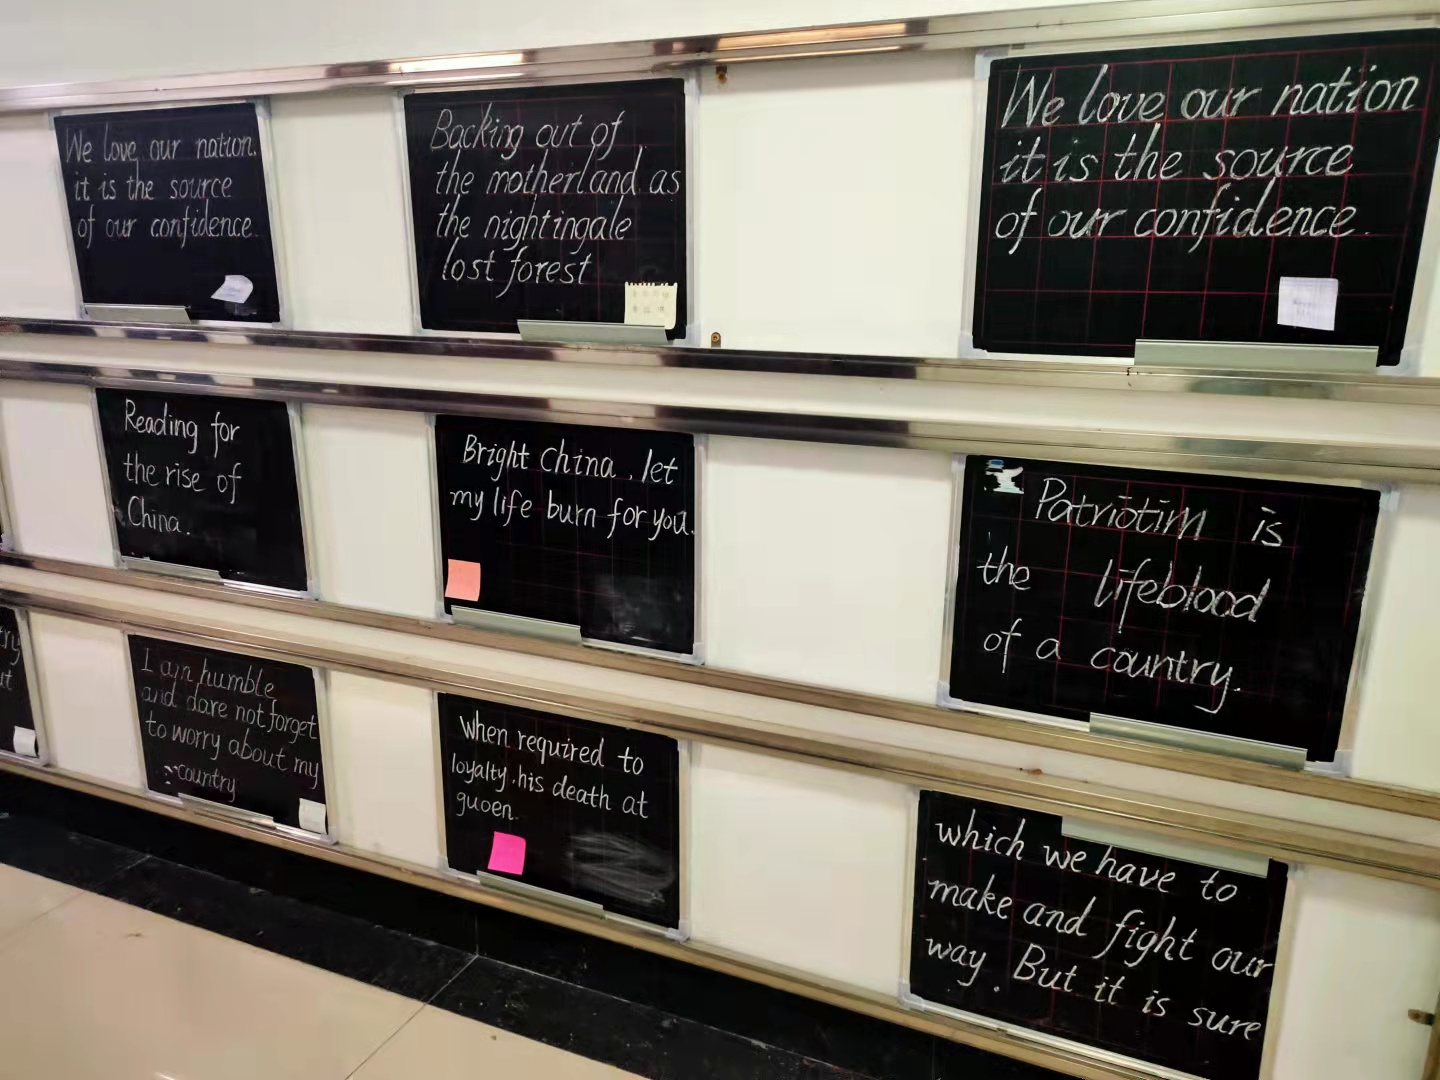 We love our nation.
it is the source
of our confidence.
Backing out of
the motherland as
the nightingale
lost forest
We love our nation
it is the source
of our confidence.
Reading for
the rise of
China.
Bright China, let
my life burn for you.
Patriotim is
the lifeblood
of a country.
I am humble
and dare not forget
to worry about my
country
When required to
loyalty, his death at
guoen.
which we have to
make and fight our
way. But it is sure